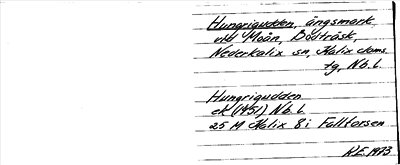 Hungrigudden, ängsmark
vid Moån, Bodträsk,
Nederkalix sn, Kalix doms.
tg, Nb. l.
Hungrigudden
ek (1951) Nb. l.
25 M Kalix 8 i Fallforsen
K.E. 1973